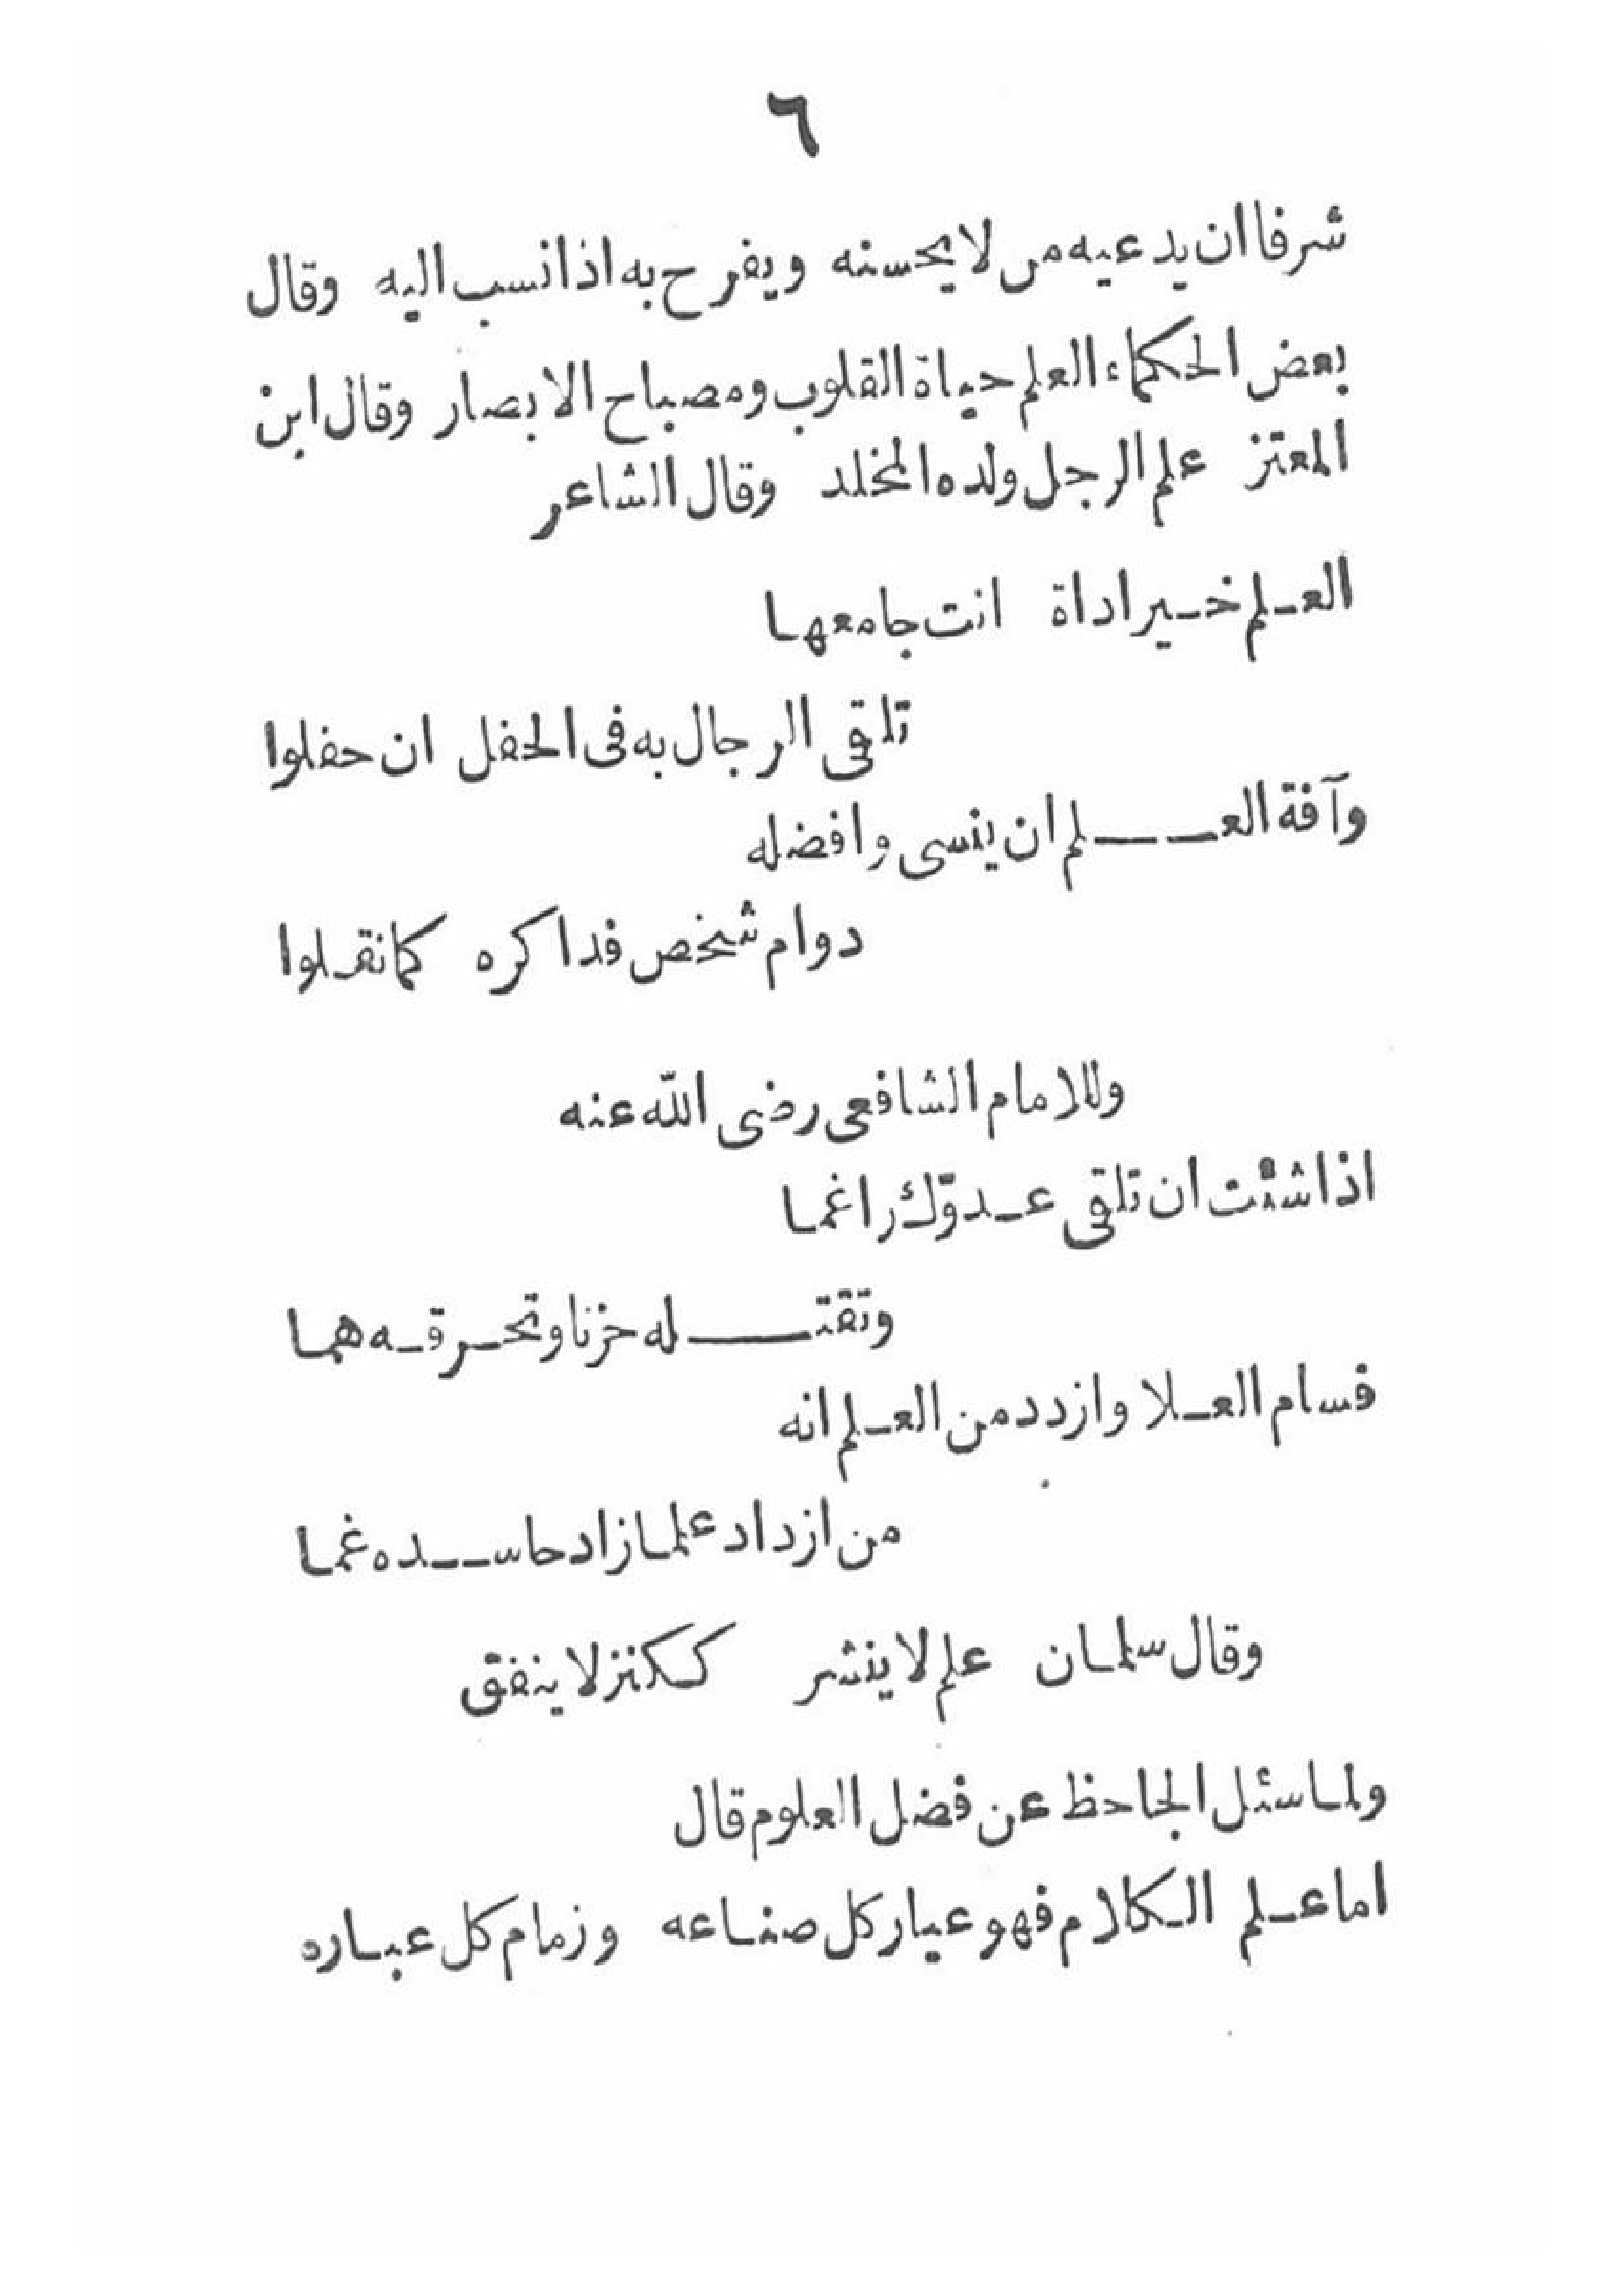 ٦
شرفا ان يدعيه من لا يحسنه ويفرح به اذا نسب اليه وقال
بعض الحكماء العلم حياة القلوب ومصباح الابصار وقال ابن
المعتز علم الرجل ولده المخلد وقال الشاعر
العـلم خـير اداة انت جامعهـا
تلقى الرجال به فى الحفل ان حفلوا
وآفة العـــلم ان ينسى وافضله
دوام شخص فذاكره كما نقـلوا
وللامام الشافعى رضى الله عنه
اذا شئت ان تلقى عـدوّك راغمـا
وتقتـــله حزنا وتحـرقـه همـا
فسام العـلا وازدد من العـلم انه
من ازداد علمـا زاد حاســده غمـا
وقال سلمـان علم لا ينشر ككنز لا ينفق
ولمـا سئل الجاحظ عن فضل العلوم قال
اما عـلم الـكلام فهو عيار كل صنـاعه وزمام كل عبـاره